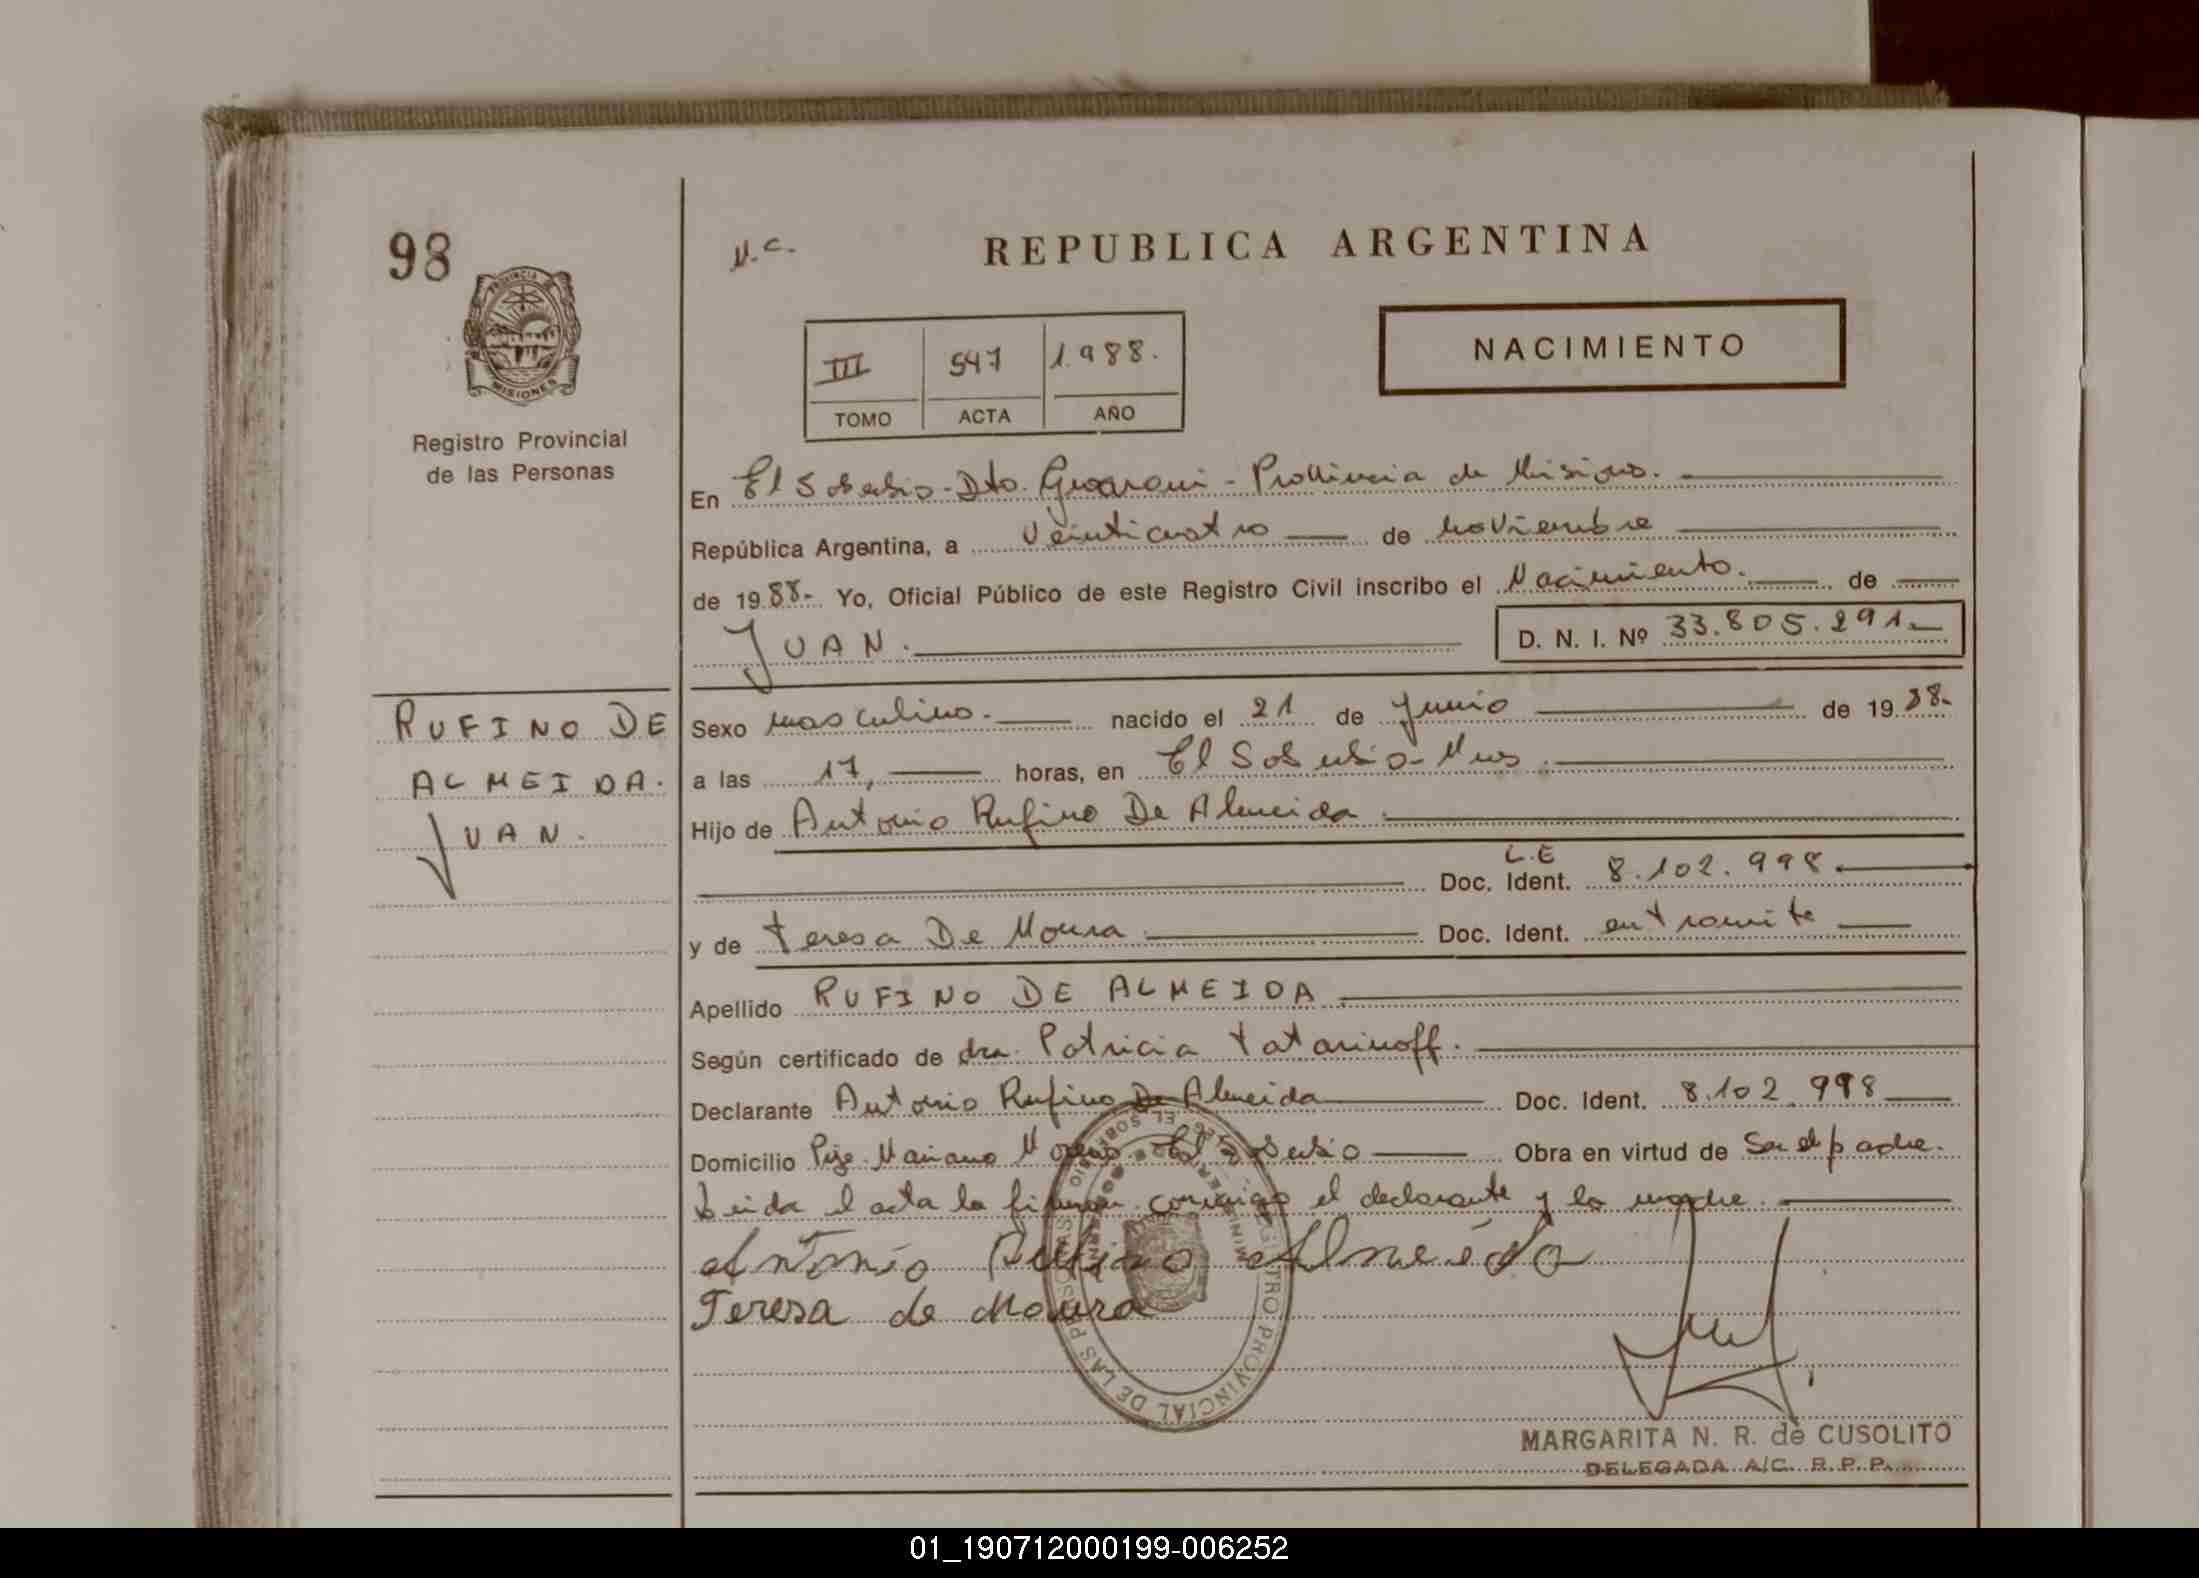 98
N.C.
REPUBLICA ARGENTINA
PROVINCIA
MISIONES
III 547 1.988.
TOMO ACTA AÑO
NACIMIENTO
Registro Provincial
de las Personas
En El Soberbio - Dto. Guarani - Provincia de Misiones.
República Argentina, a Veinticuatro de Noviembre
de 1988- Yo, Oficial Público de este Registro Civil inscribo el Nacimiento. de
JUAN. D. N. I. Nº 33.805.291.-
RUFINO DE
ALMEIDA.
JUAN.
Sexo masculino.- nacido el 21 de Junio de 1988-
a las 17, horas, en El Soberbio - Mnes.
Hijo de Antonio Rufino De Almeida
L.E
Doc. Ident. 8.102.998
y de Teresa De Moura Doc. Ident. en tramite
Apellido RUFINO DE ALMEIDA
Según certificado de dra. Patricia Tatarinoff.
Declarante Antonio Rufino De Almeida Doc. Ident. 8.102.998
Domicilio Pje. Mariano Moreno El Soberbio Obra en virtud de Ser el padre.
Leida el acta la firman conmigo el declarante y la madre.
Antonio Rufino Almeida
Teresa de Moura
REGISTRO PROVINCIAL DE LAS PERSONAS
MARGARITA N. R. de CUSOLITO
DELEGADA A/C. R. P. P.
01_190712000199-006252